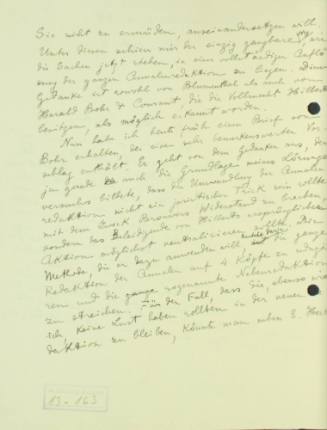 Sie nicht zu ermüden, auseinandersetzen will.
Unter diesen schien mir der einzig gangbare, wie
die Sachen jetzt stehen, in einer vollständigen Auflö-
sung der ganzen Annalenredaktion zu liegen. Dieser
Gedanke ist sowohl von Blumenthal auch von
Harald Bohr & Courant die die Vollmacht Hilberts
besitzen, als möglich erkannt worden.
Nun habe ich heute früh einen Brief von
Bohr erhalten, der einen sehr bemerkenswerten Vor-
schlag enthält. Er geht von dem Gedanken aus, der
ja gerade auch die Grundlagen meines Lösungs-
versuches bildete, dass die Umwandlung der Annalen-
redaktion nicht ein juristischer Trick sein sollte
mit dem Zweck Brouwers Widerstand zu brechen,
sondern das Beleidigende von Hilberts ursprünglicher
Aktion möglichst neutralisieren sollte. Die
Methode, die er dazu anwenden will, die ganze
Redaktion der Annalen auf 4 Köpfe zu redu-
zieren und die ganze sogenannte Nebenredaktion
zu streichen. Für den Fall, dass Sie, ebenso wie
ich, keine Lust haben sollten in der neuen
daktion zu bleiben, könnte man neben
13-163